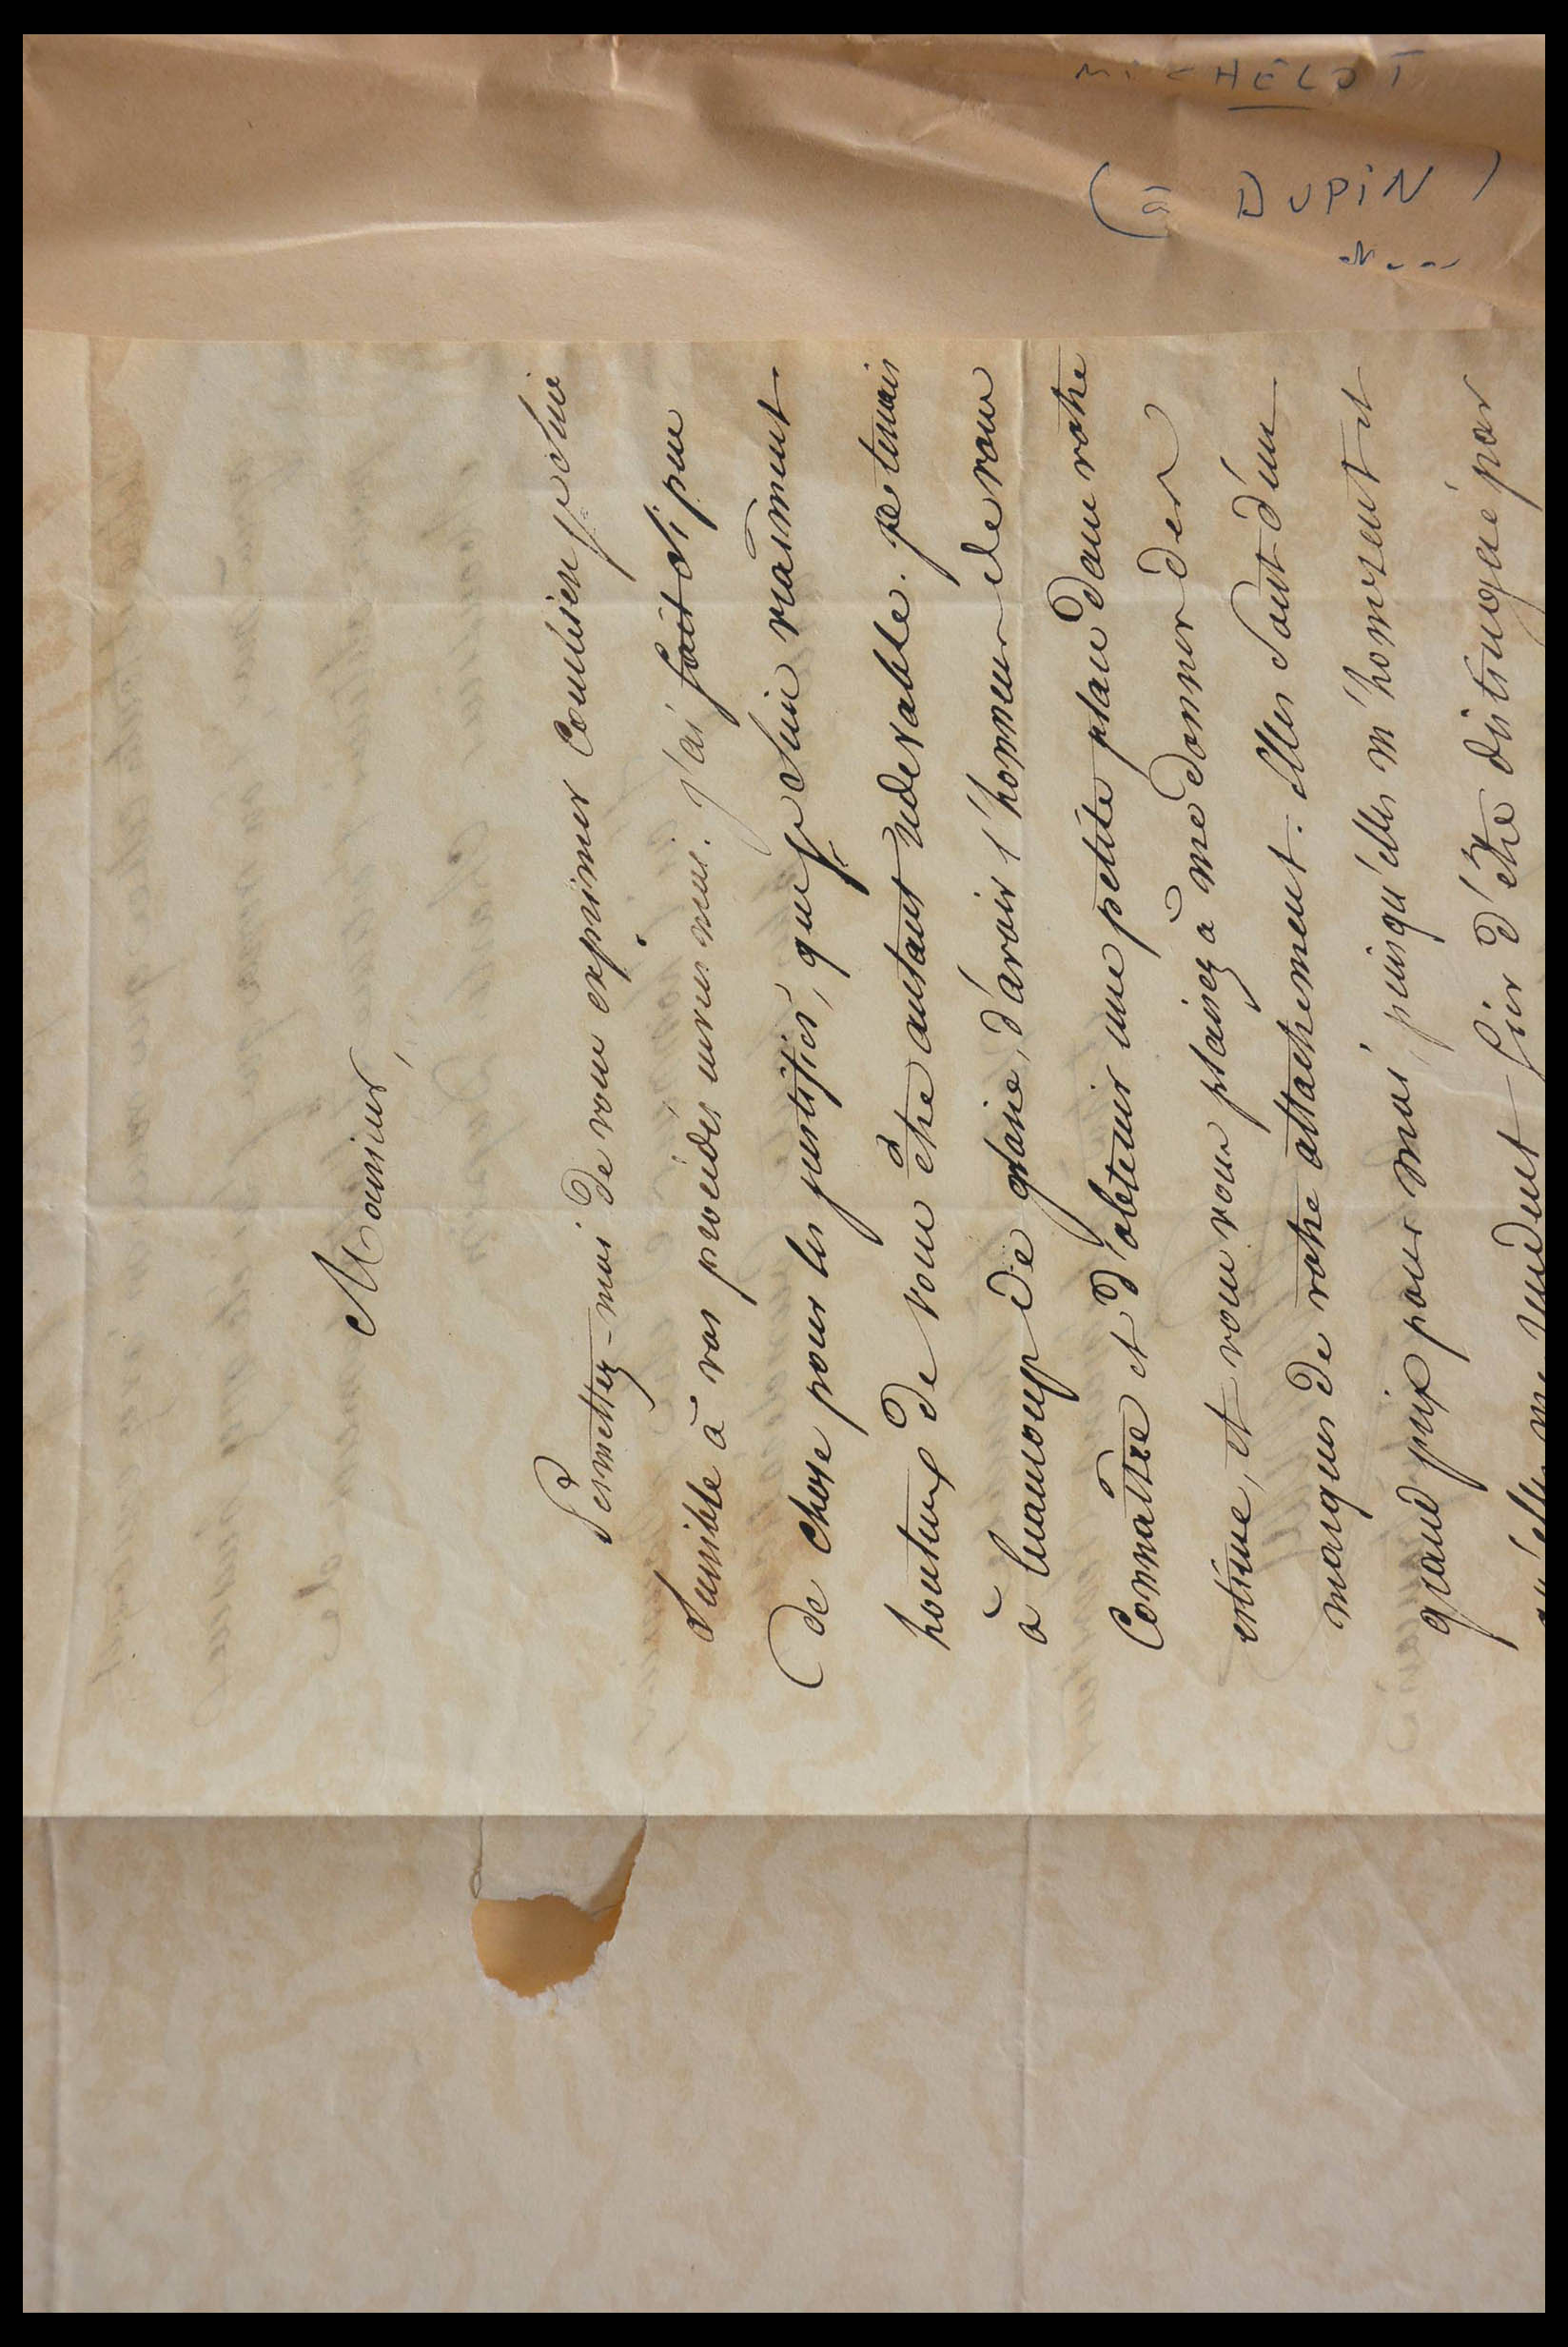 MICHELOT
(à DUPIN)
Monsieur,
Permettez-moi de vous exprimer combien je suis
sensible à vos procédés envers moi. j'ai fait si peu
de chose pour les justifier, que je suis vraiment
honteux de vous être autant redevable. je tenais
à beaucoup de gloire, d'avoir l'honneur de vous
connaître et d'obtenir une petite place dans votre
estime, et vous vous plaisez à me donner des
marques de votre attachement. Elles sont d'un
grand prix pour moi, puisqu'elles m'honorent et
qu'elles me rendent fier d'être distingué par